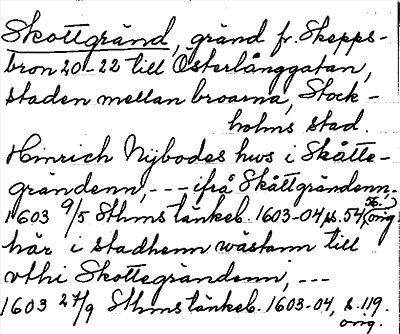 Skottgränd, gränd fr. Skepps-
bron 20-22 till Österlånggatan,
staden mellan broarna, Stock-
holms stad.
Hinrich Nijbodes hws i Skåtte-
grändenn, --- ifrå Skåttgrändenn.
1603 9/5 Sthms tänkeb. 1603-04, s. 54, 56. orig.
här i stadhenn wästann till
vthi Skottegrändenn, ---
1603 27/9 Sthms tänkeb. 1603-04, s. 119.
orig.